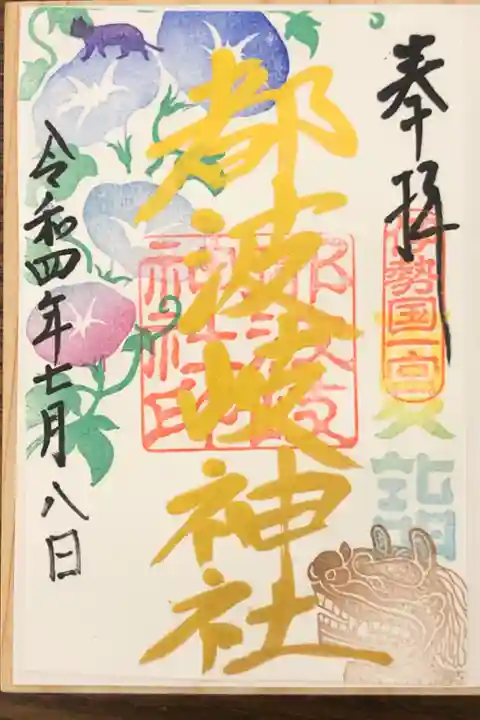 奉拝
伊勢国一宮
都波岐神社
都波岐
神社印
令和四年七月八日